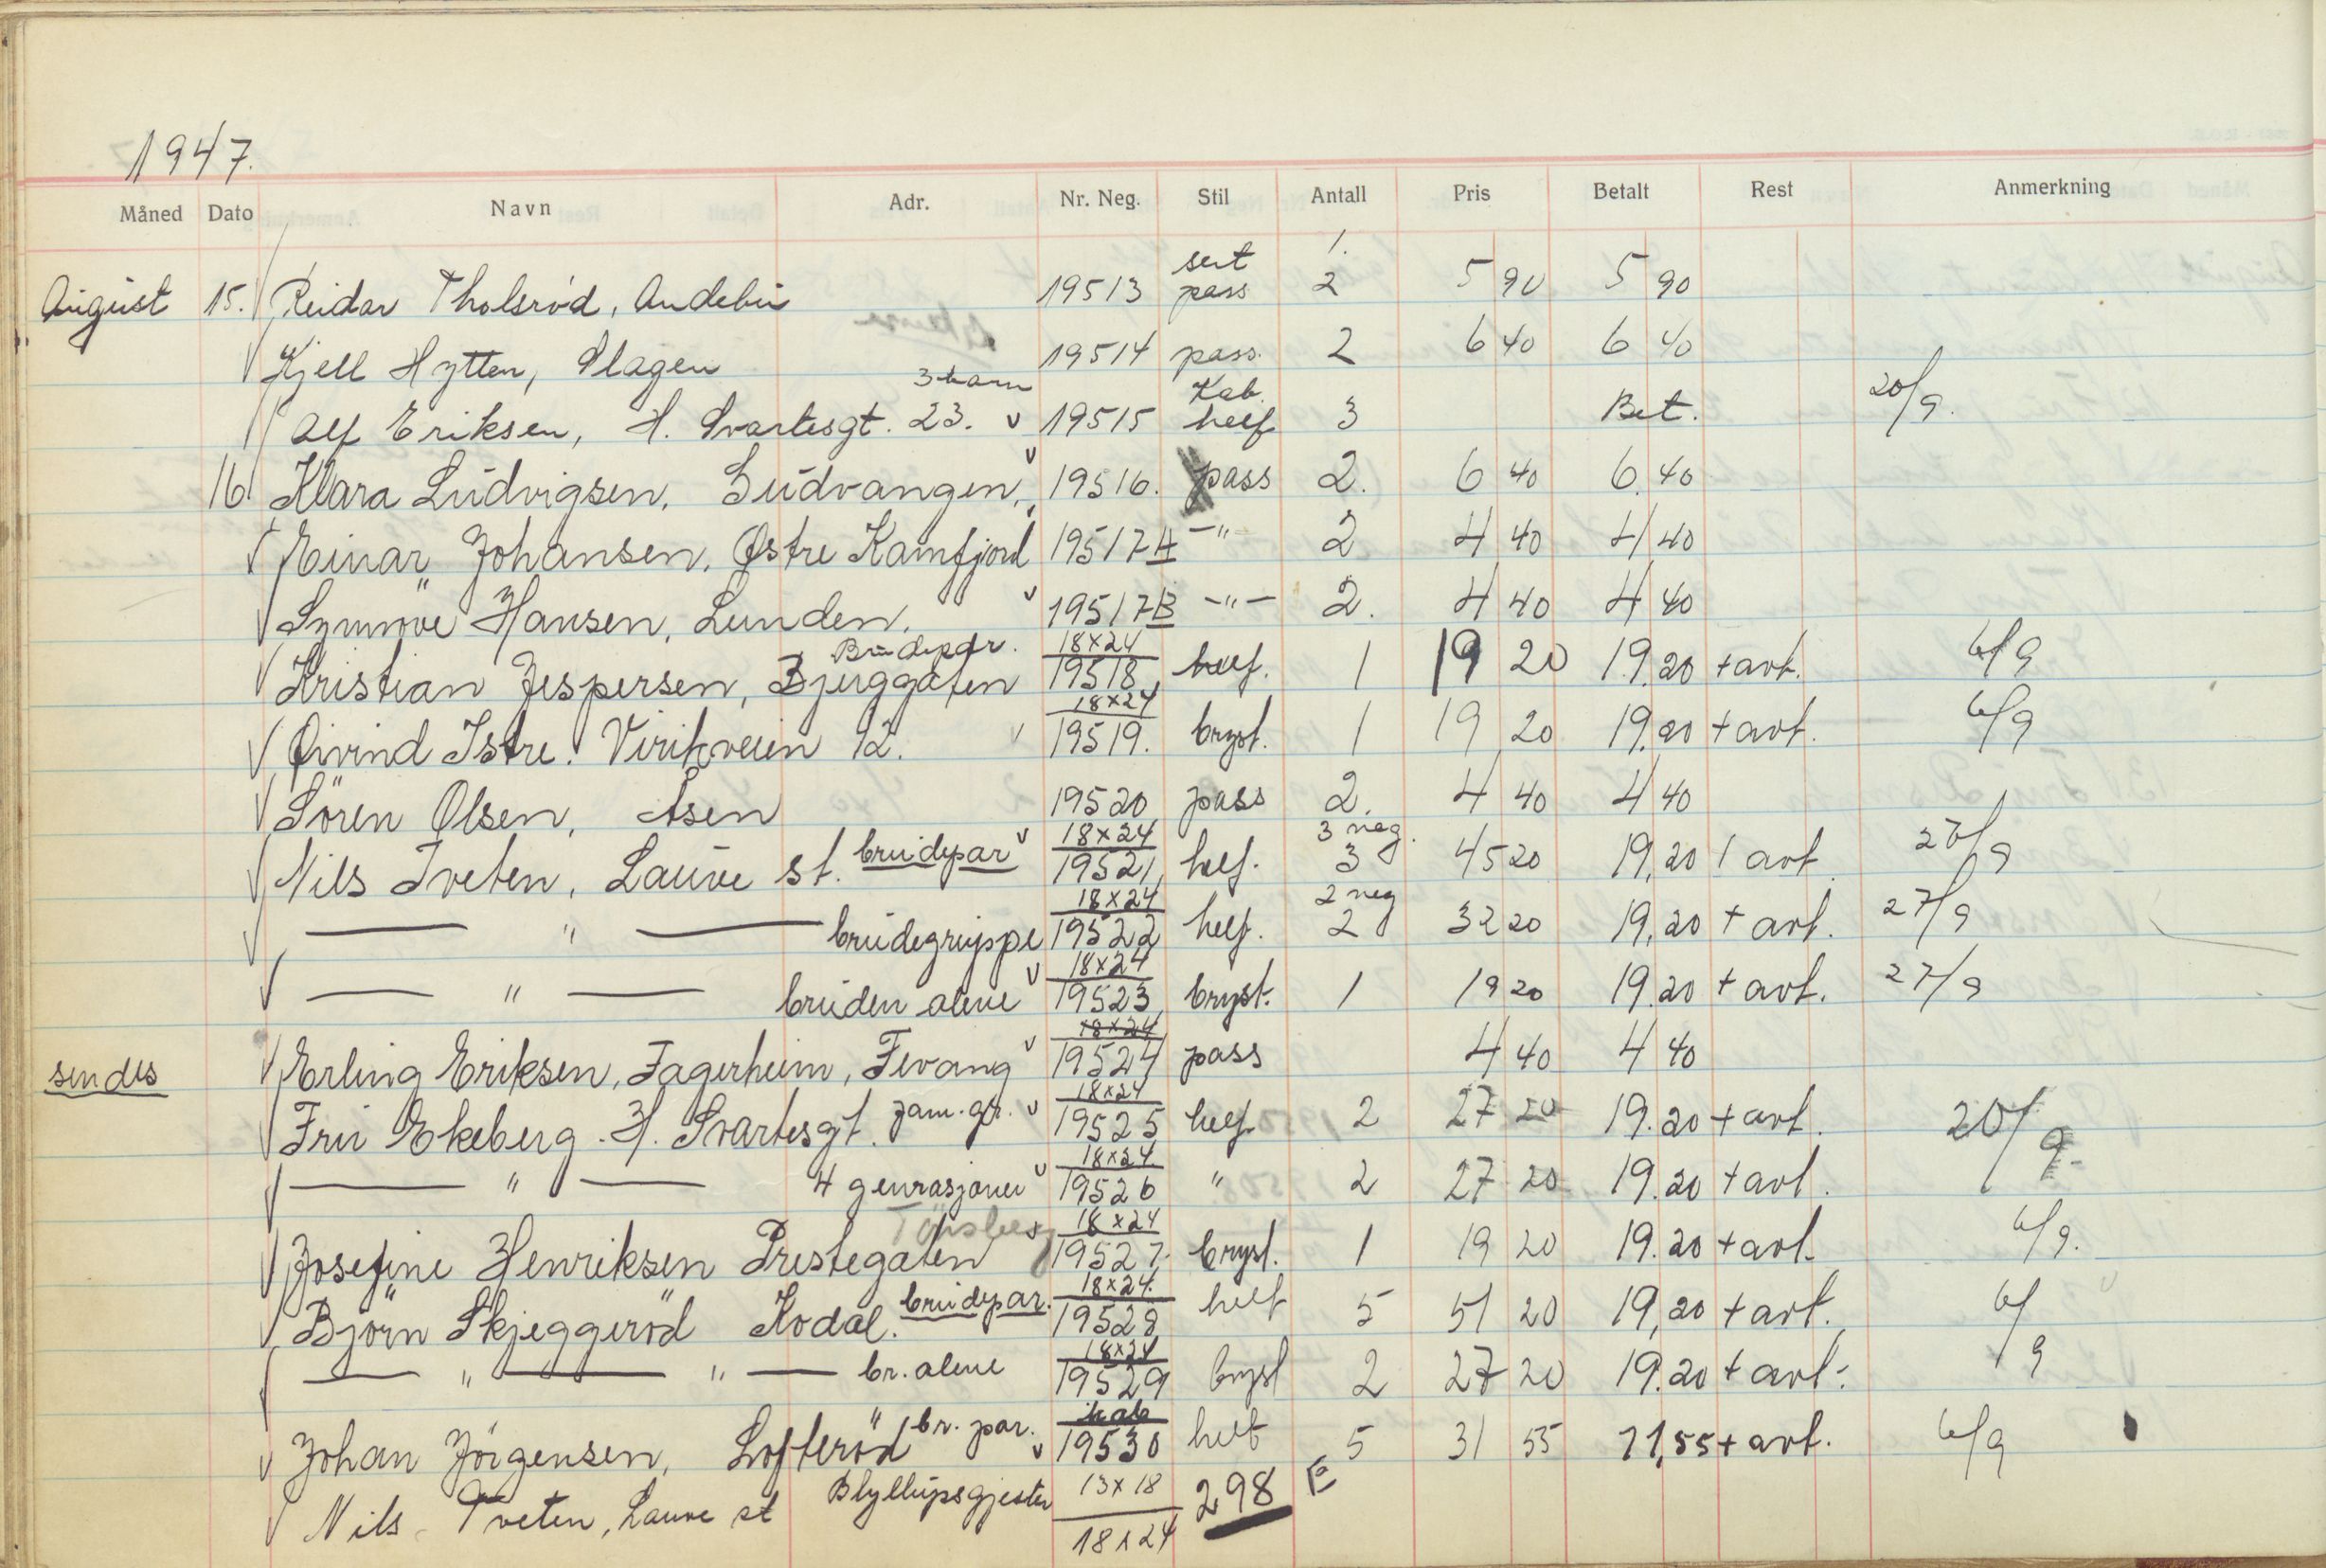 1947.
Måned Dato Navn Adr. Nr. Neg. Stil Antall Pris Betalt Rest Anmerkning
sert 1.
August 15. Reidar Tholsröd, Andebu 19513 pass 2 5 90 5 90
Kjell Hytten, Slagen 19514 pass. 2 6 40 6 40
3 barn Kab.
Alf Eriksen, H. Svartesgt. 23. v 19515 helf 3 Bet. 20/9.
16 Klara Ludvigsen, Gudvangen, v 19516. pass 2. 6 40 6. 40
Einar Johansen, Østre Kamfjord 19517A -"- 2 4 40 4 40
Synnöve Hansen, Lunden. v 19517B -"- 2. 4 40 4 40
Brudepar. 18x24
Kristian Jespersen, Bjerggaten 19518 helf. 1 19 20 19.20 + avt. 6/9
18x24
Øivind Istre. Virikveien 12. v 19519. bryst. 1 19 20 19.20 + avt. 6/9
Sören Olsen, Åsen 19520 pass 2. 4 40 4 40
brudepar v 18x24 3 neg.
Nils Tveten, Lauve st. 19521 helf. 3 45 20 19,20 1 avt 27/9
18x24 2 neg
— " — brudegruppe 19522 helf. 2 32 20 19,20 + avt. 27/9
18x24
— " — bruden alene v 19523 bryst. 1 19 20 19.20 + avt. 27/9
18x24
sendes Erling Eriksen, Fagerheim, Fevang v 19524 pass 4 40 4 40
18x24
Fru Ekeberg. H. Svartesgt. fam. gr. v 19525 helf 2 27 20 19.20 + avt. 20/9.
18x24
— " — 4 genrasjoner v 19526 " 2 27 20 19.20 + avt.
Tönsberg 18x24
Josefine Henriksen Prestegaten 19527. bryst. 1 19 20 19.20 + avt. 6/9.
brudepar. 18x24.
Björn Skjeggeröd Kodal. 19528 helf 5 51 20 19,20 + avt. 6/9
18x24
— " — " — br. alene 19529 bryst 2 27 20 19.20 + avt.
br. par. kab
Johan Jörgensen, Lofteröd v 19530 helf 5 31 55 11,55 + avt. 6/9
Nils Tveten, Lauve st Bryllupsgjester 13x18 298
18x24